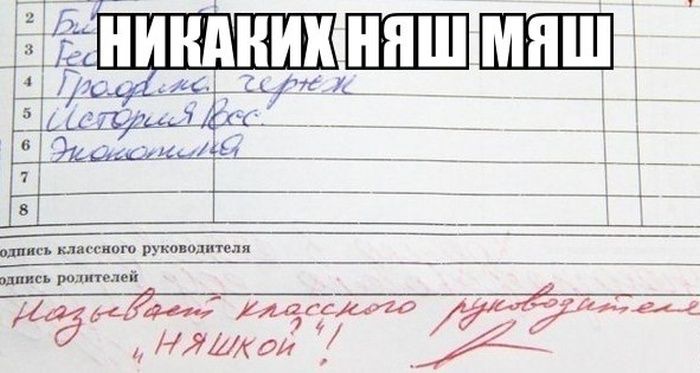 НИКАКИХ НЯШ МЯШ
2
3 Гео
4 Графика чертж
5 История Росс
6 Экономика
7
8
одпись классного руководителя
одпись родителей
Называет классного руководителя
„НЯШКОЙ"!